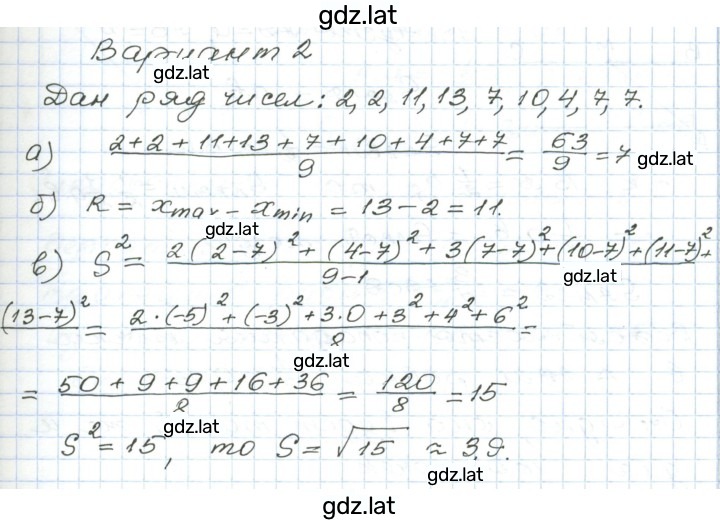 gdz.lat
Вариант 2
gdz.lat
Дан ряд чисел: 2, 2, 11, 13, 7, 10, 4, 7, 7.
а) (2+2+11+13+7+10+4+7+7)/9 = 63/9 = 7 gdz.lat
б) R = x_max - x_min = 13 - 2 = 11.
gdz.lat
в) S² = 2(2-7)²+(4-7)²+3(7-7)²+(10-7)²+(11-7)²+
9-1 gdz.lat
(13-7)² = (2·(-5)²+(-3)²+3·0+3²+4²+6²)/8 =
gdz.lat
= (50+9+9+16+36)/8 = 120/8 = 15
gdz.lat
S² = 15, то S = √15 ≈ 3,9.
gdz.lat
gdz.lat